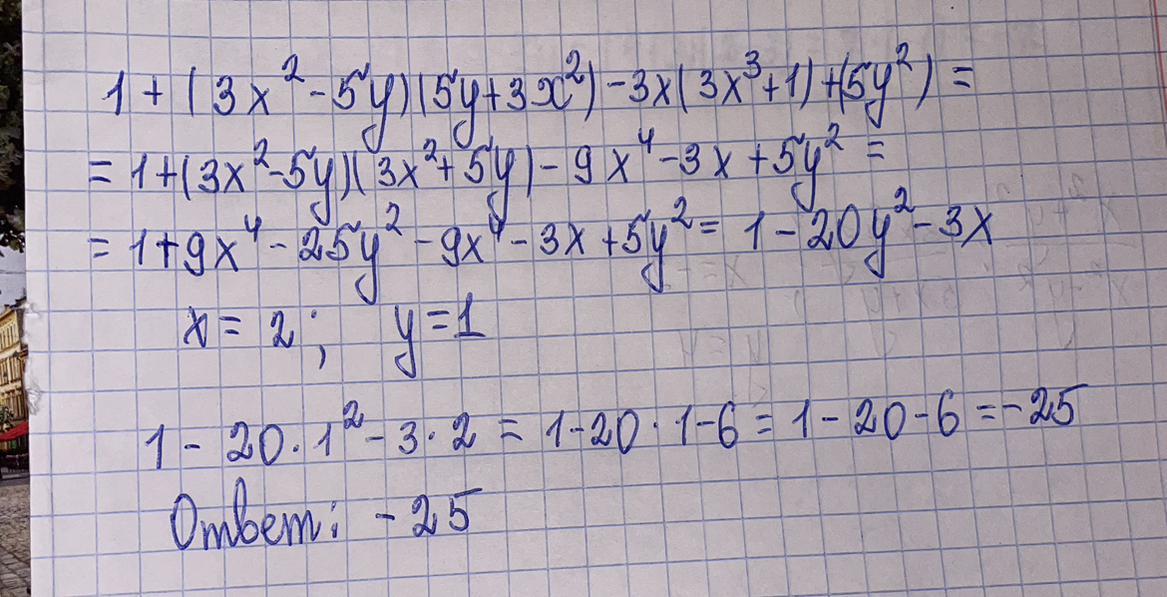 1 + (3x² - 5y)(5y + 3x²) - 3x(3x³ + 1) + (5y²) =
= 1 + (3x² - 5y)(3x² + 5y) - 9x⁴ - 3x + 5y² =
= 1 + 9x⁴ - 25y² - 9x⁴ - 3x + 5y² = 1 - 20y² - 3x
x = 2; y = 1
1 - 20 · 1² - 3 · 2 = 1 - 20 · 1 - 6 = 1 - 20 - 6 = -25
Ответ: -25